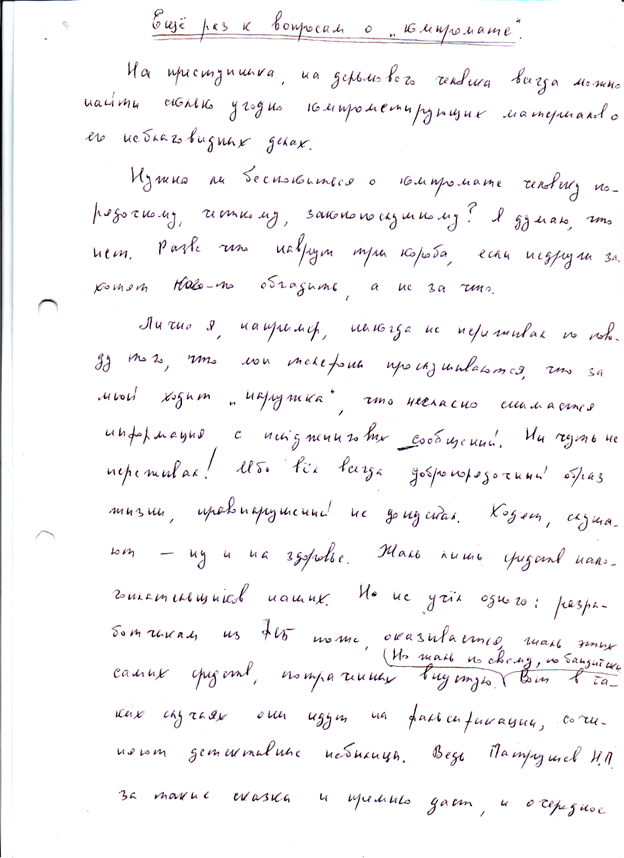 Ещё раз к вопросам о „компромате“.
На преступника, на дерьмового человека всегда можно
найти сколько угодно компрометирующих материалов о
его неблаговидных делах.
Нужно ли беспокоиться о компромате человеку по-
рядочному, честному, законопослушному? Я думаю, что
нет. Разве что наврут три короба, если недруги за-
хотят кого-то обгадить, а не за что.
Лично я, например, никогда не переживал по пово-
ду того, что мои телефоны прослушиваются, что за
мной ходит „наружка“, что негласно снимается
информация с пейджинговых сообщений. Ни чуть не
переживал! Ибо вёл всегда добропорядочный образ
жизни, правонарушений не допускал. Ходят, слуша-
ют — ну и на здоровье. Жаль лишь средств нало-
гоплательщиков наших. Но не учёл одного: разра-
ботчикам из ФСБ тоже, оказывается, жаль этих
(Но жаль по своему, по бандитски
самих средств, потраченных впустую. Вот в та-
ких случаях они идут на фальсификации, сочи-
няют детективные небылицы. Ведь Патрушев Н.П.
за такие сказки и премию даст, и очередное